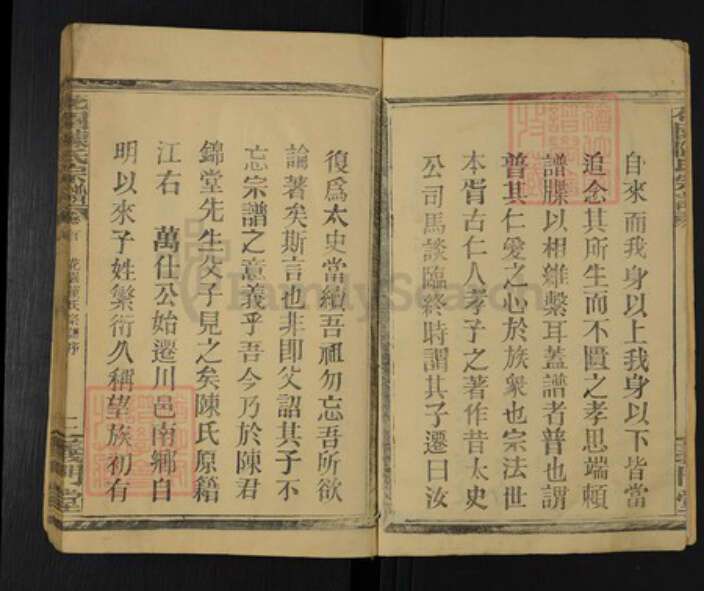 自來而我身以上我身以下皆當
追念其所生而不匱之孝思端賴
譜牒以相維繫耳蓋譜者普也謂
普其仁愛之心於族衆也宗法世
本胥古仁人孝子之著作昔太史
公司馬談臨終時謂其子遷曰汝
復爲太史當續吾祖勿忘吾所欲
論著矣斯言也非即父詔其子不
忘宗譜之意義乎吾今乃於陳君
錦堂先生父子見之矣陳氏原籍
江右 萬仕公始遷川邑南鄉自
明以來子姓繁衍久稱望族初有
花園陳氏宗譜 卷首 花園陳氏宗譜序 二 義門堂
FamilySearch